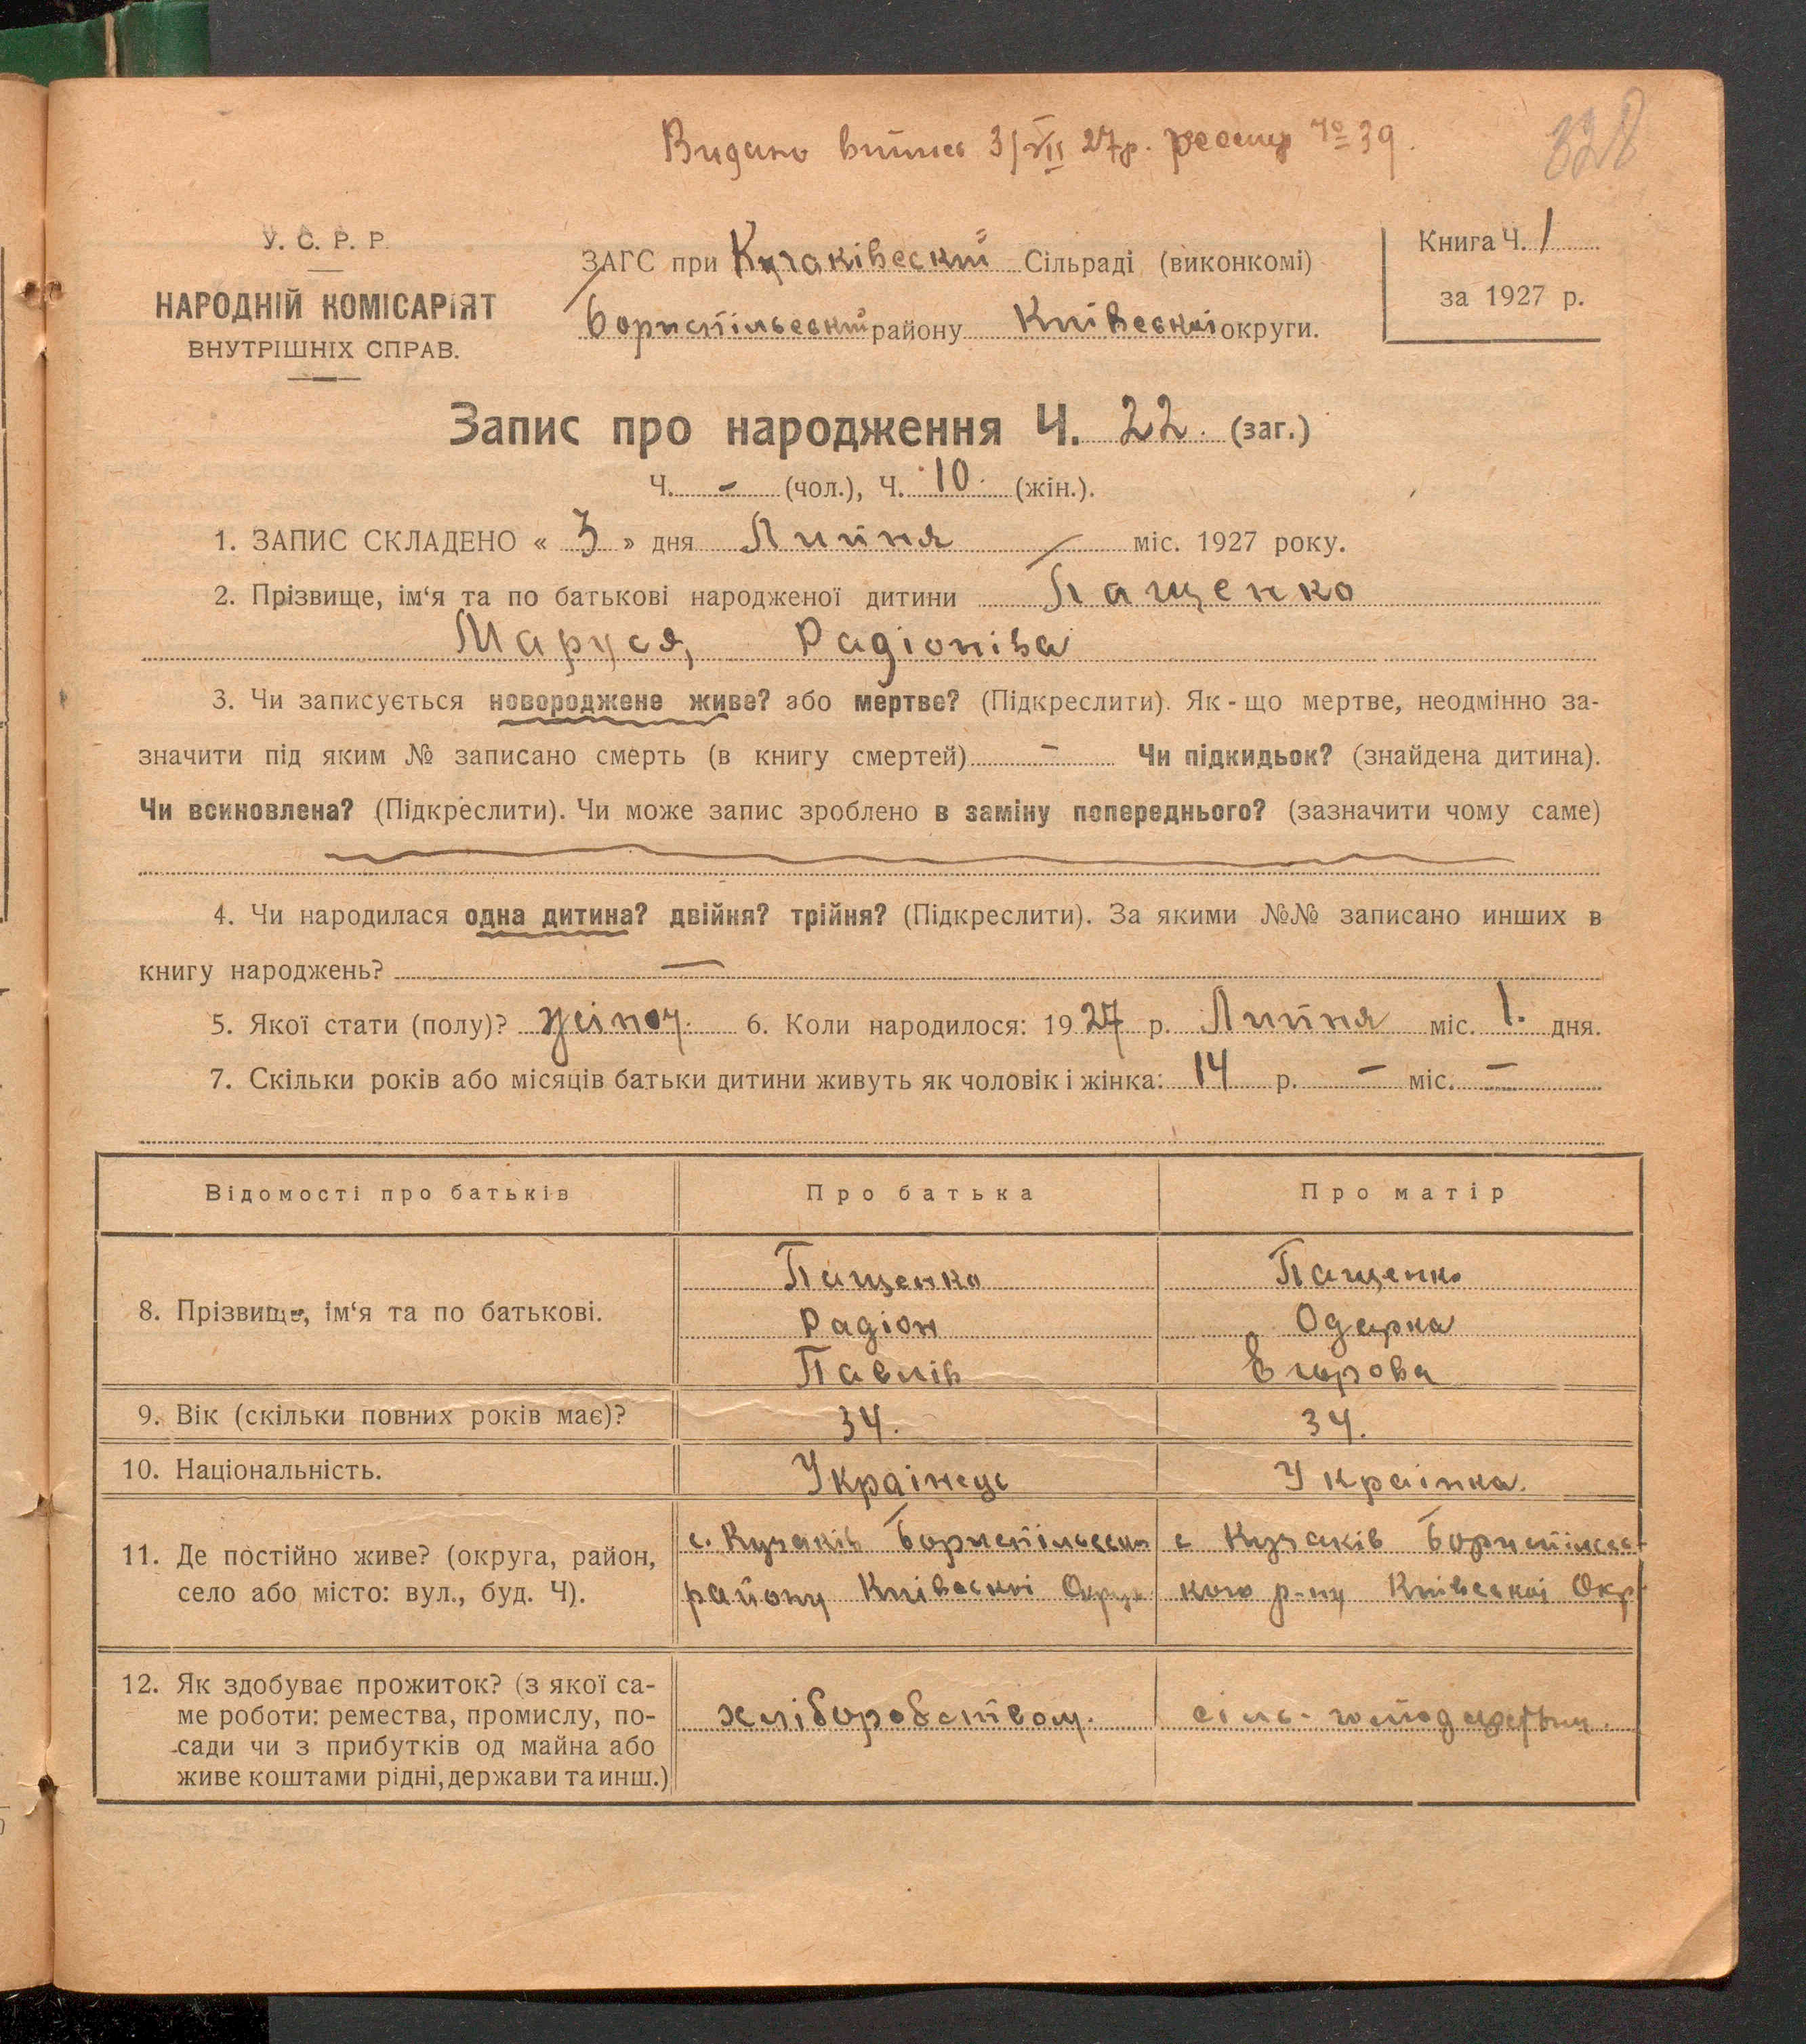 328
Видано витяг 3/VII 27р. реестр № 39.
У. С. Р. Р.
НАРОДНІЙ КОМІСАРІЯТ
ВНУТРІШНІХ СПРАВ.
ЗАГС при Кучаківський Сільраді (виконкомі)
Бориспільський району Київської округи.
Книга Ч. 1
за 1927 р.
Запис про народження Ч. 22. (заг.)
Ч. - (чол.), Ч. 10. (жін.).
1. ЗАПИС СКЛАДЕНО « 3 » дня Липня міс. 1927 року.
2. Прізвище, ім‘я та по батькові народженої дитини Пащенко
Маруся, Радіоніва
3. Чи записується новороджене живе? або мертве? (Підкреслити). Як-що мертве, неодмінно за-
значити під яким № записано смерть (в книгу смертей) - Чи підкидьок? (знайдена дитина).
Чи всиновлена? (Підкреслити). Чи може запис зроблено в заміну попереднього? (зазначити чому саме)
4. Чи народилася одна дитина? двійня? трійня? (Підкреслити). За якими №№ записано инших в
книгу народжень? —
5. Якої стати (полу)? жіноч. 6. Коли народилося: 1927 р. Липня міс. 1. дня.
7. Скільки років або місяців батьки дитини живуть як чоловік і жінка: 14 р. - міс. -
Відомості про батьків Про батька Про матір
8. Прізвище, ім‘я та по батькові.
Пащенко Пащенко
Радіон Одарка
Павлів Егорова
9. Вік (скільки повних років має)? 34. 34.
10. Національність. Українець Українка.
11. Де постійно живе? (округа, район,
село або місто: вул., буд. Ч).
с. Кучаків Бориспільськ
району Київської Округ
с Кучаків Бориспільсь-
кого р-ну Київської Окр
12. Як здобуває прожиток? (з якої са-
ме роботи: ремества, промислу, по-
сади чи з прибутків од майна або
живе коштами рідні, держави та инш.)
хліборобством. сіль-господарствм.